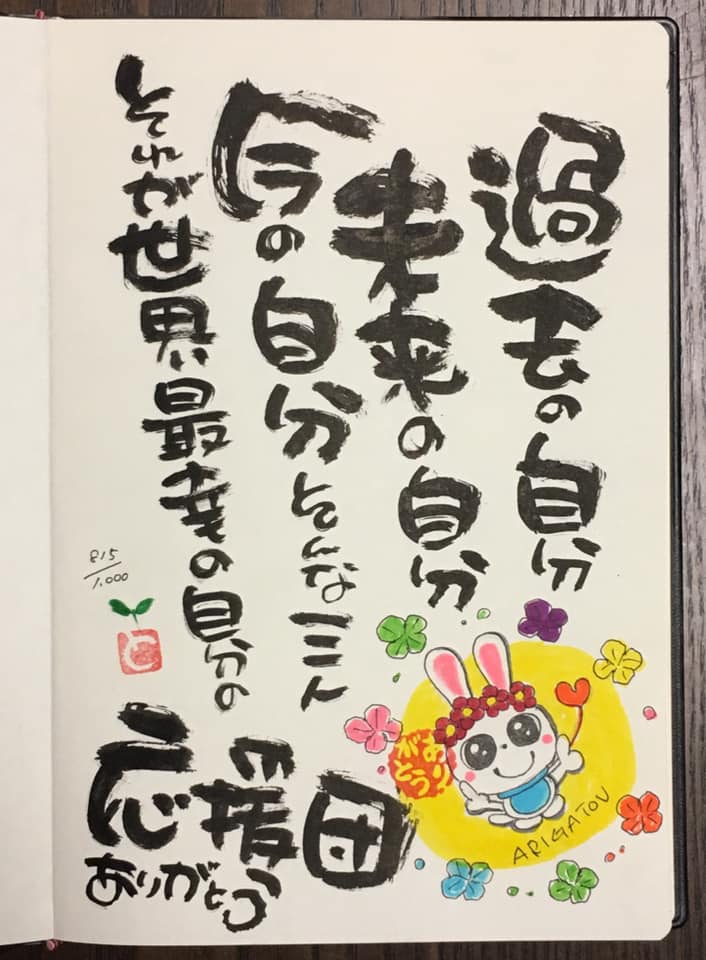 過去の自分
未来の自分
今の自分そんな三人
それが世界最幸の自分の
応援団
ありがとう
ありがとう
ARIGATOU
815/1,000
C